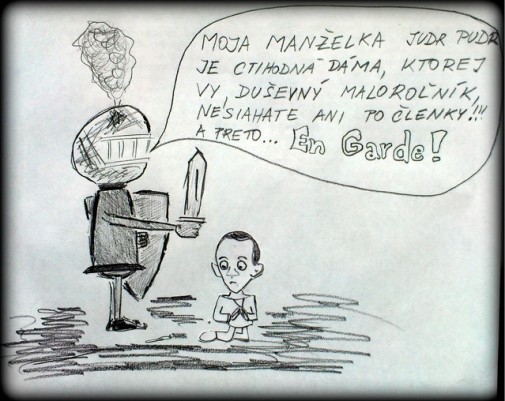 MOJA MANŽELKA JUDR PUDR
JE CTIHODNÁ DÁMA, KTOREJ
VY, DUŠEVNÝ MALOROĽNÍK,
NESIAHATE ANI PO ČLENKY!!!
A PRETO... En Garde!